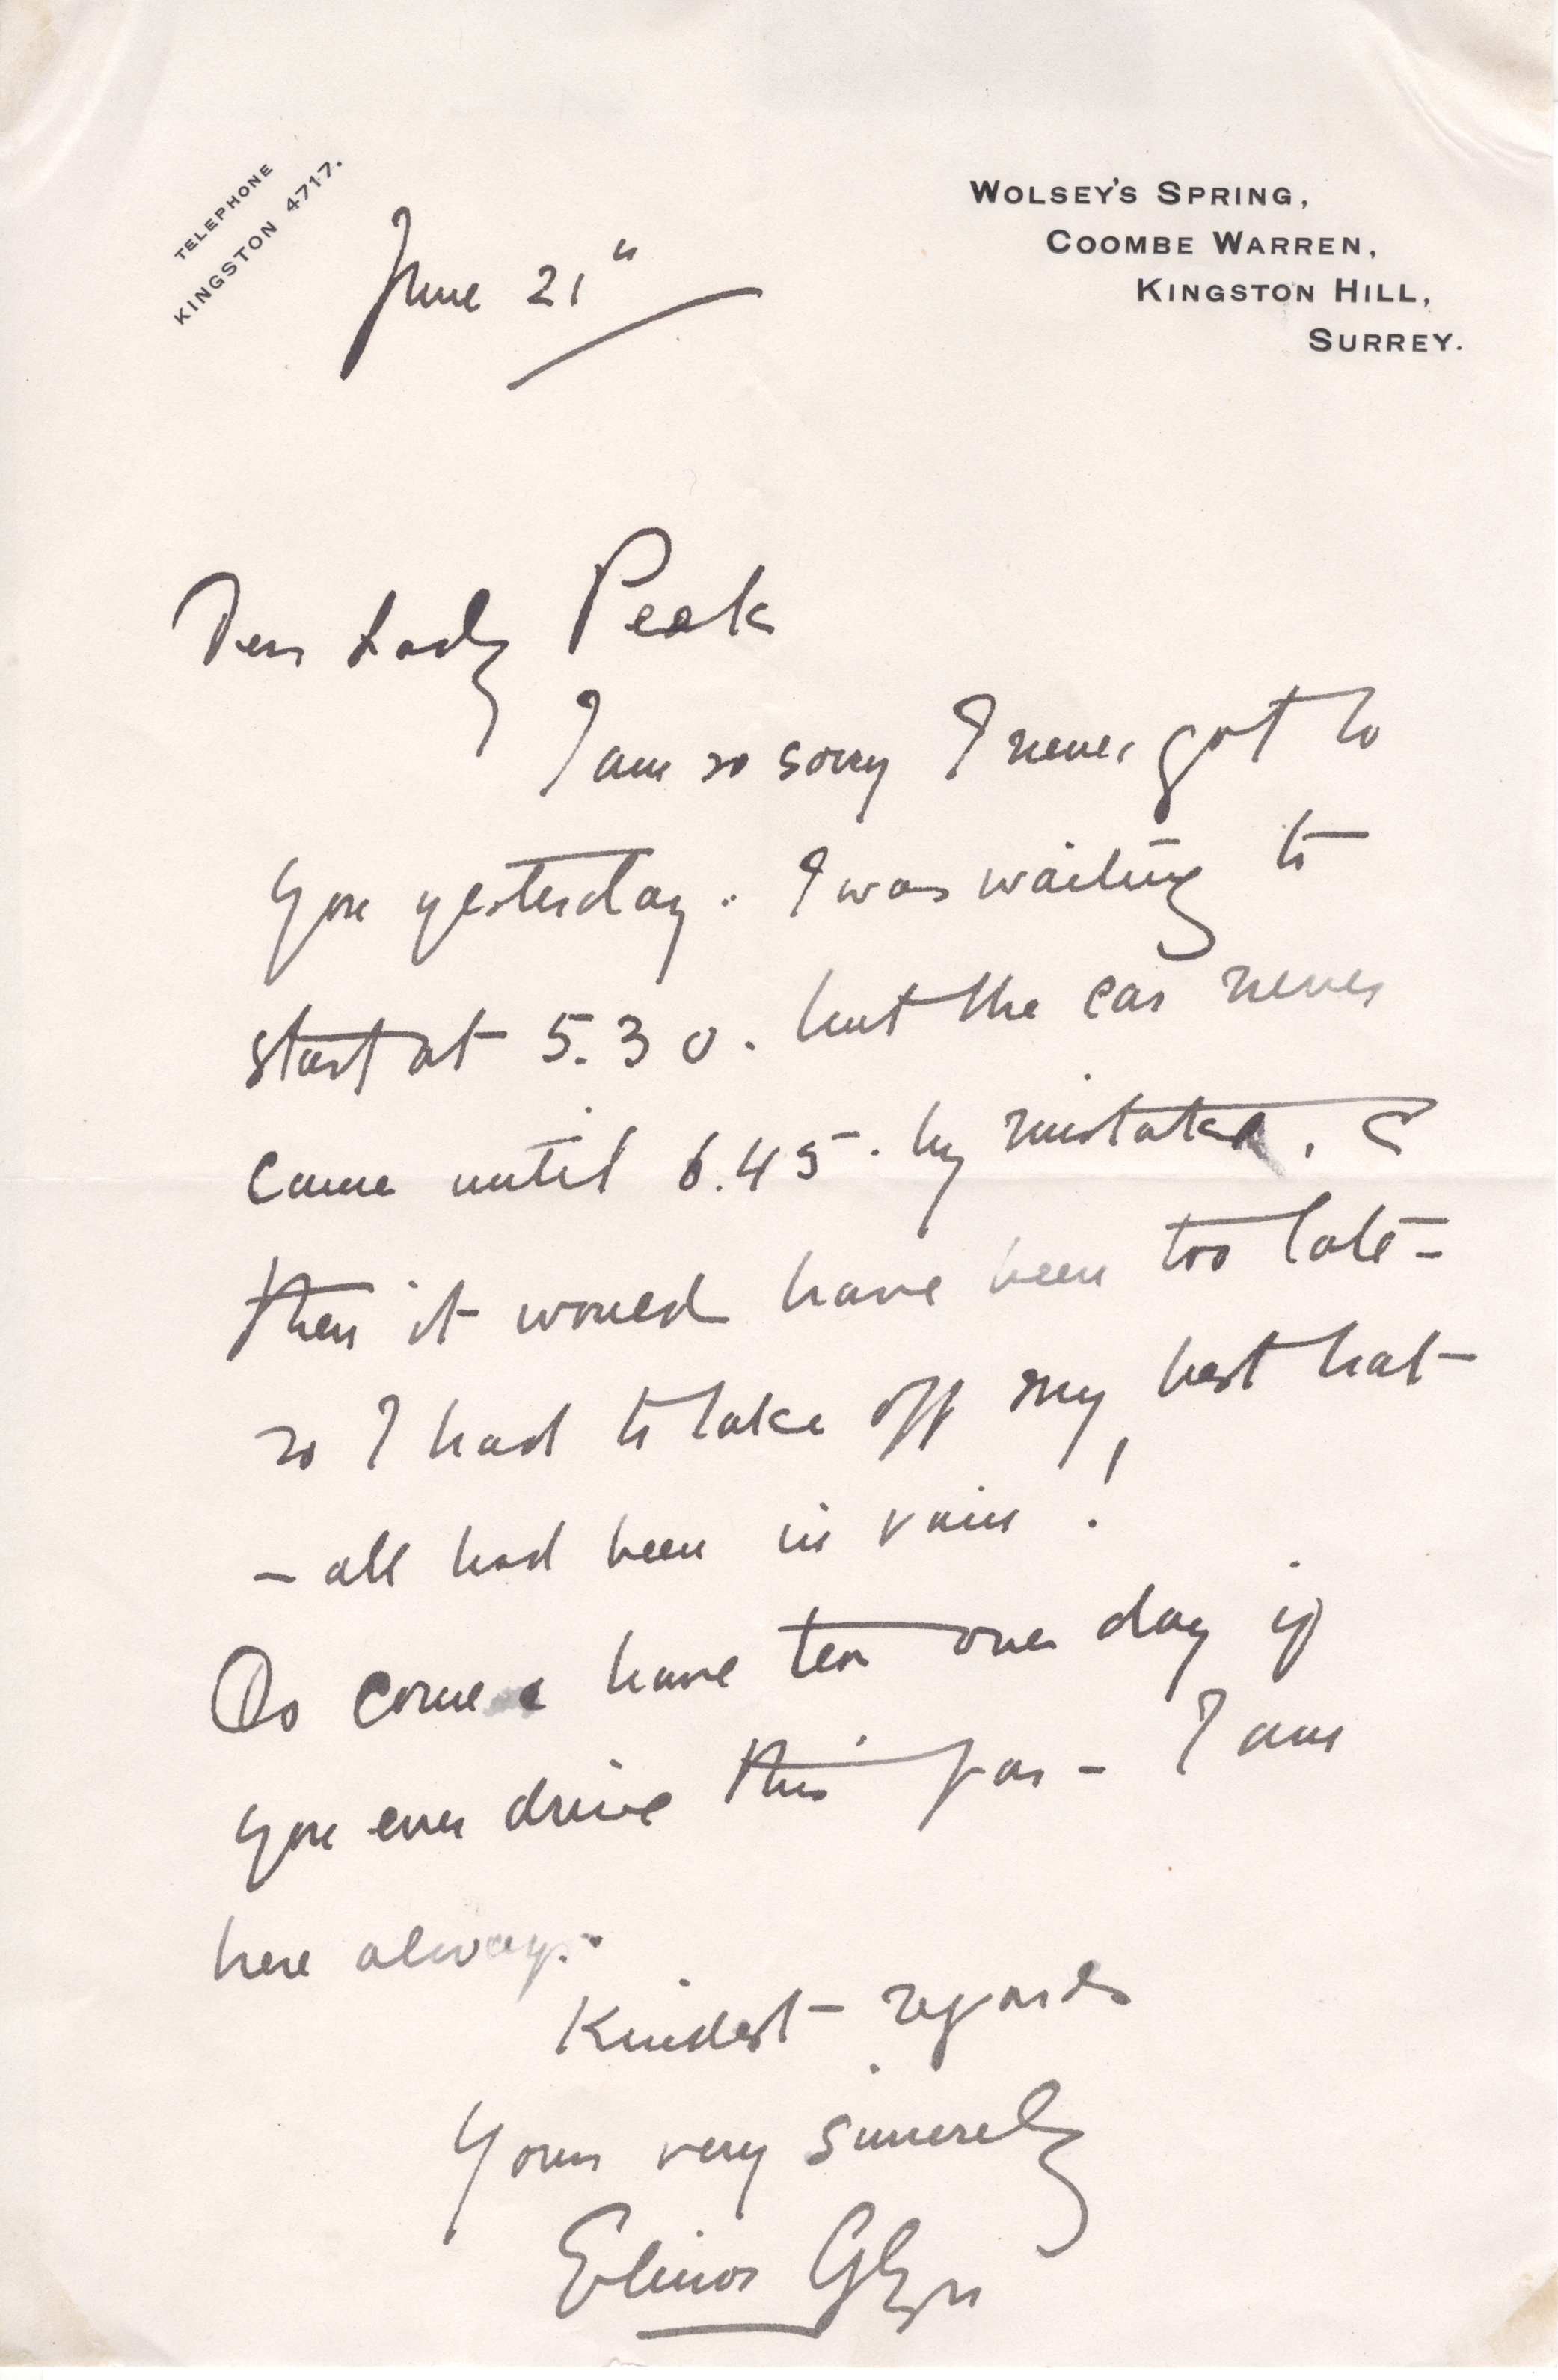 TELEPHONE
KINGSTON 4717.
WOLSEY'S SPRING,
COOMBE WARREN,
KINGSTON HILL,
SURREY.
June 21"
Dear Lady Peak
I am so sorry I never got to
you yesterday. I was waiting to
start at 5.30. but the car never
came until 6.45. by mistake, &
then it would have been too late –
so I had to take off my best hat
– all had been in vain!
Do come & have tea one day if
you ever drive this far – I am
here always.
Kindest regards
Yours very sincerely
Elinor Glyn